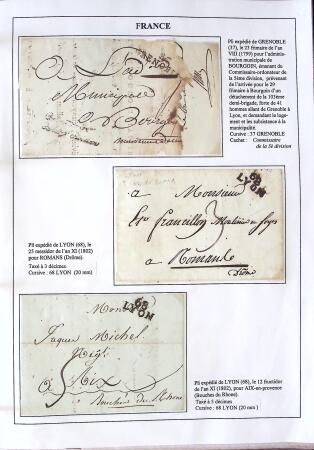 FRANCE
Pli expédié de GRENOBLE
(37), le 23 frimaire de l'an
VIII (1799) pour l'adminis-
tration municipale de
BOURGOIN, émanant du
Commissaire-ordonateur de
la 5ème division, prévenant
de l'arrivée pour le 29
frimaire à Bourgoin d'un
détachement de la 103ème
demi-brigade, forte de 41
hommes allant de Grenoble à
Lyon, et demandant le loge-
ment et les subsistance à la
municipalité.
Cursive : 37 GRENOBLE
Cachet : Commissaire
de la 5è division
Municipale
68
LYON
a Monsieur
a Romans
Drôme
Pli expédié de LYON (68), le
25 messidor de l'an XI (1802)
pour ROMANS (Drôme).
Taxé à 3 décimes
Cursive : 68 LYON (20 mm)
68
LYON
Jaques Michel
Negt
a Aix
Bouches du Rhone
Pli expédié de LYON (68), le 12 fructidor
de l'an XI (1802), pour AIX-en-provence
(Bouches du Rhone).
Taxé à 5 décimes
Cursive : 68 LYON (20 mm )